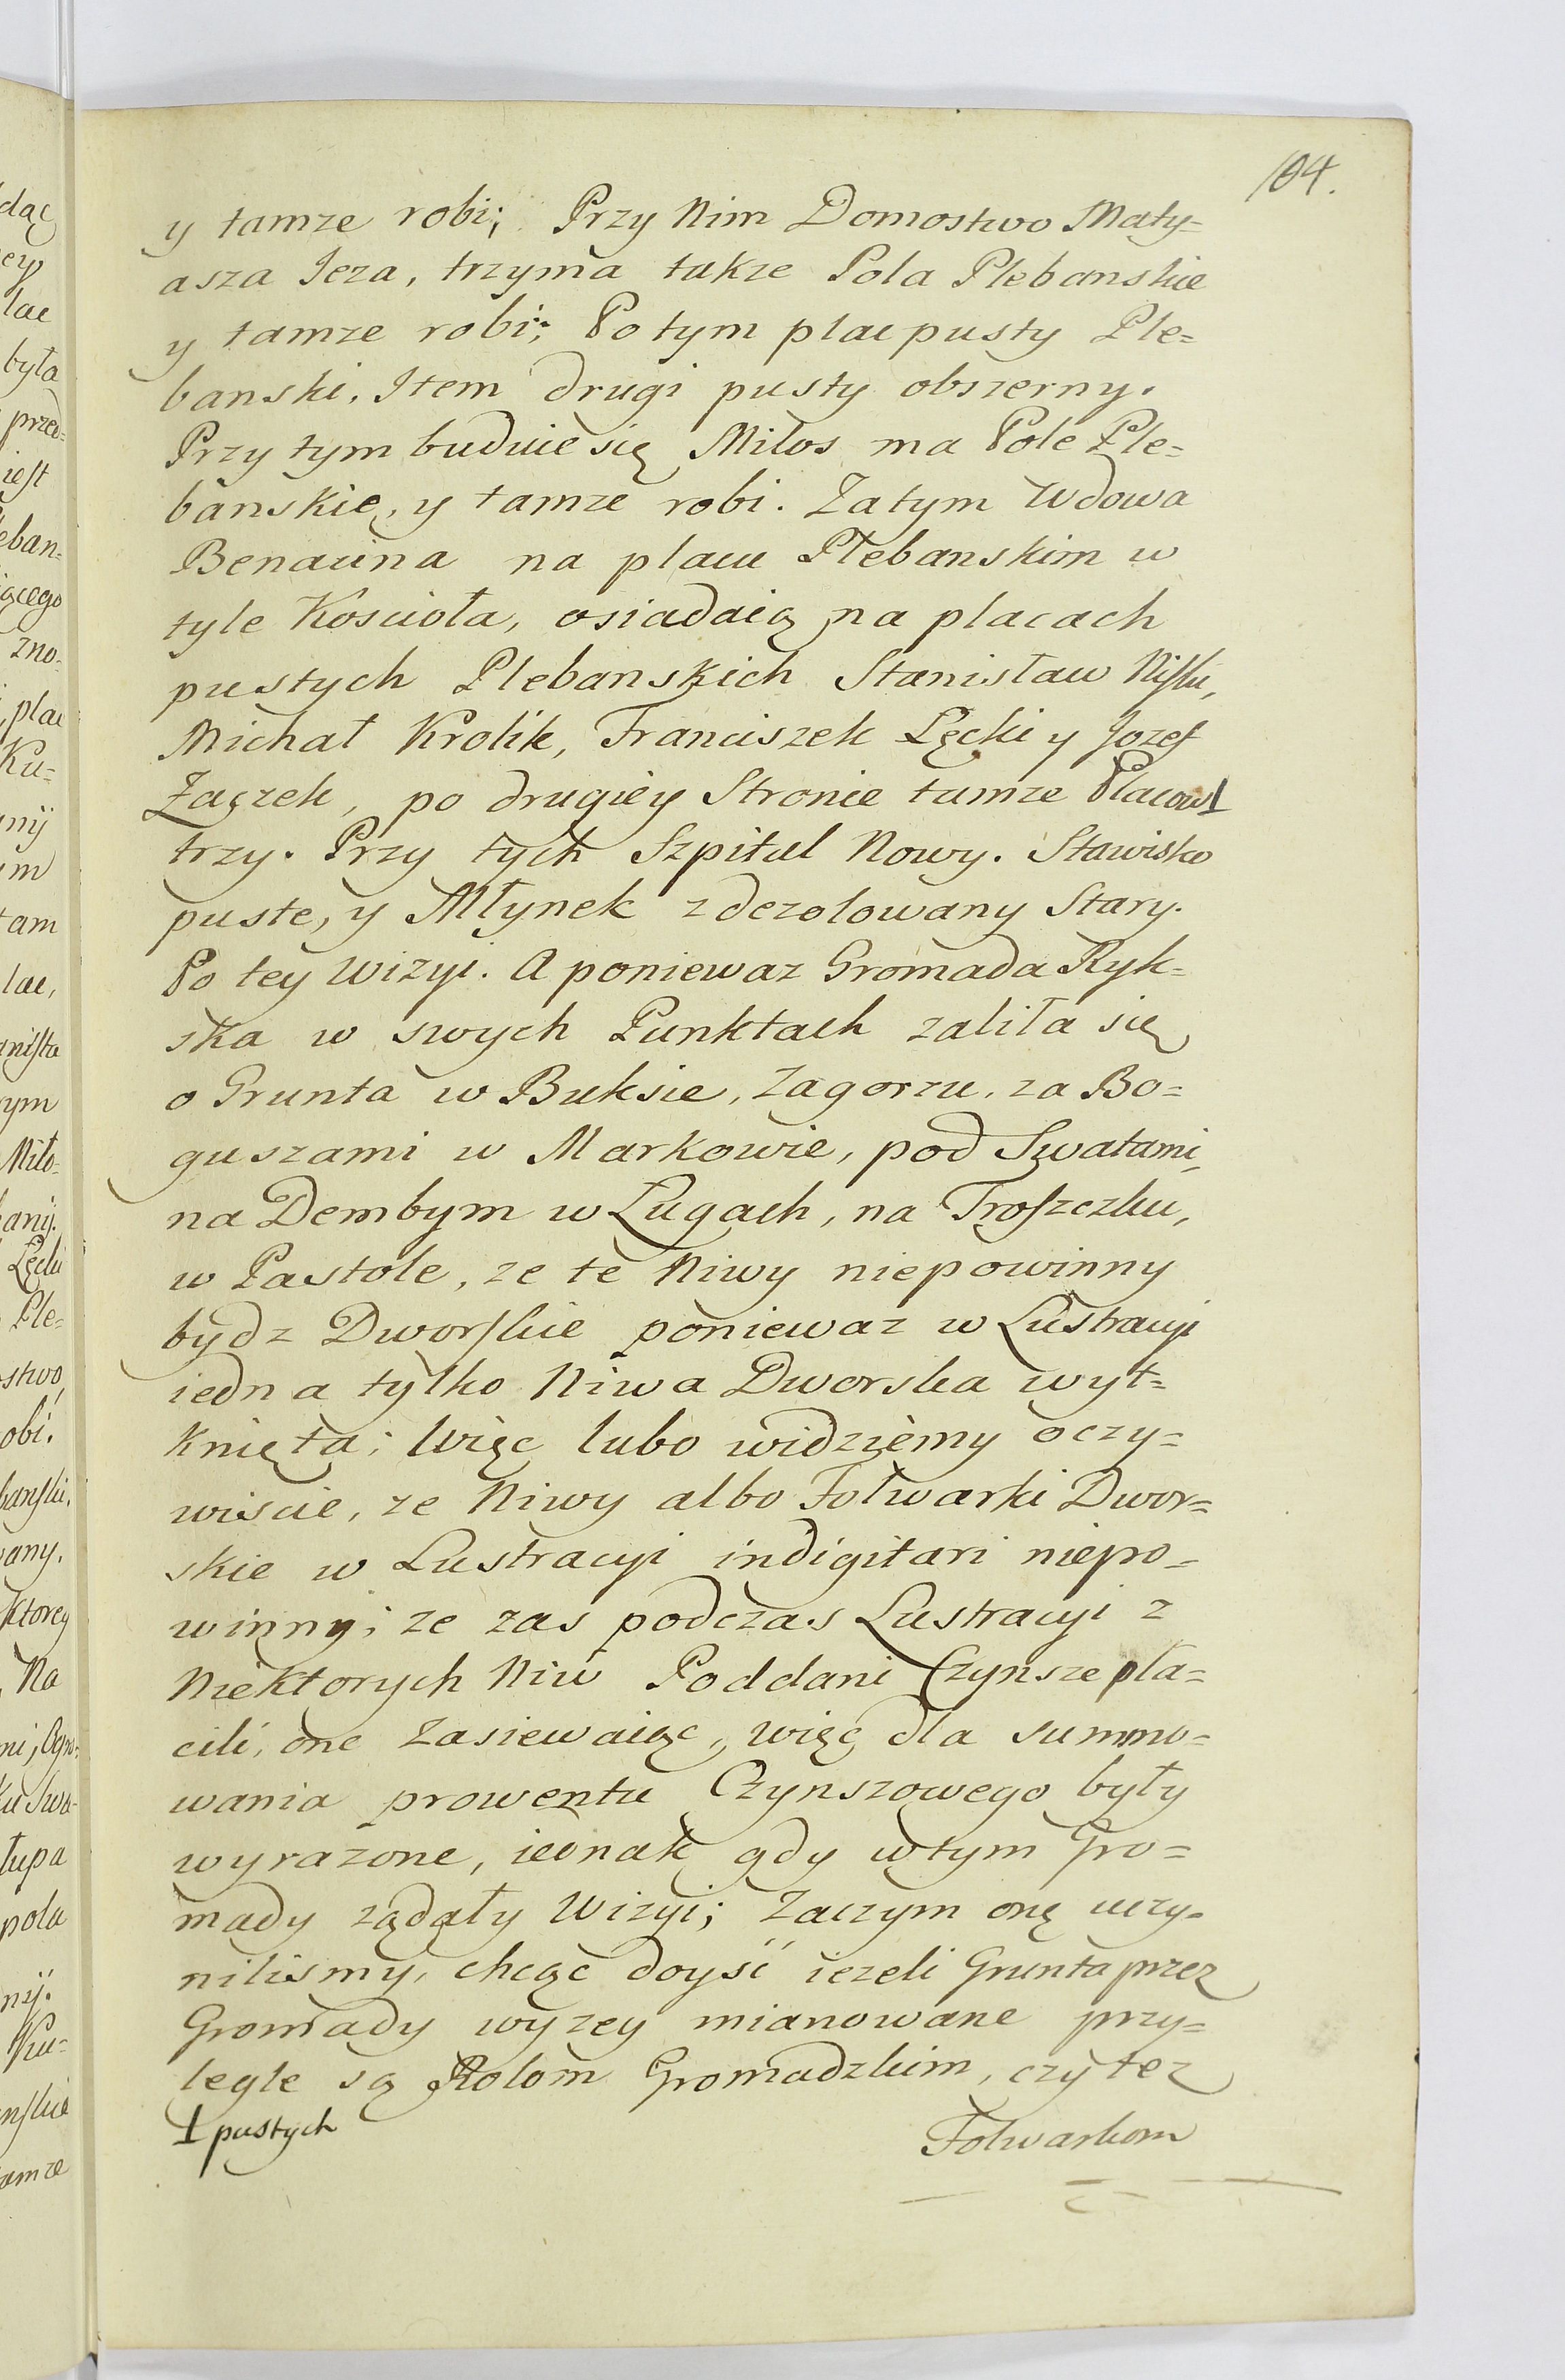 104.
y tamze robi; Przy Nim Domostwo Maty=
asza Jeza, trzyma takze Pola Plebanskie
y tamze robi; Po tym plac pusty Ple=
banski. Item drugi pusty obszerny.
Przy tym buduie się Miłos ma Pole Ple=
banskie, y tamze robi. Zatym Wdowa
Benacina na placu Plebanskim w
tyle Kościoła, osiadaią na placach
pustych Plebanskich Stanisław Niski,
Michał Krolik, Franciszek Lęcki y Jozef
Zączek, po drugiey Stronie tamze Placow⊥
trzy. Przy tych Szpital Nowy. Stawisko
puste, y Młynek zdezolowany Stary.
Po tey Wizyi. A poniewaz Gromada Ryk=
ska w swych Punktach zaliła się
o Grunta w Buksie, Zagorzu, za Bo=
guszami w Markowie, pod Swatami,
na Dembym w Ługach, na Troszczku,
w Pastole, ze te Niwy niepowinny
bydz Dworskie poniewaz w Lustracyi
iedna tylko Niwa Dworska wyt=
knięta; Więc lubo widziemy oczy=
wiscie, ze Niwy albo Folwarki Dwor=
skie w Lustracyi indigitari niepo=
winny; ze zas podczas Lustracyi z
Niektorych Niw Poddani Czynsze pła=
cili, one zasiewaiąc, więc dla summo=
wania prowentu Czynszowego były
wyrazone, iednak gdy wtym Gro=
mady ządały Wizyi; Zaczym onę uczy=
nilismy, chcąc doyść iezeli Grunta przez
Gromady wyzey mianowane przy=
legle są Rolom Gromadzkim, czy tez
⊥ pustych
Folwarkom